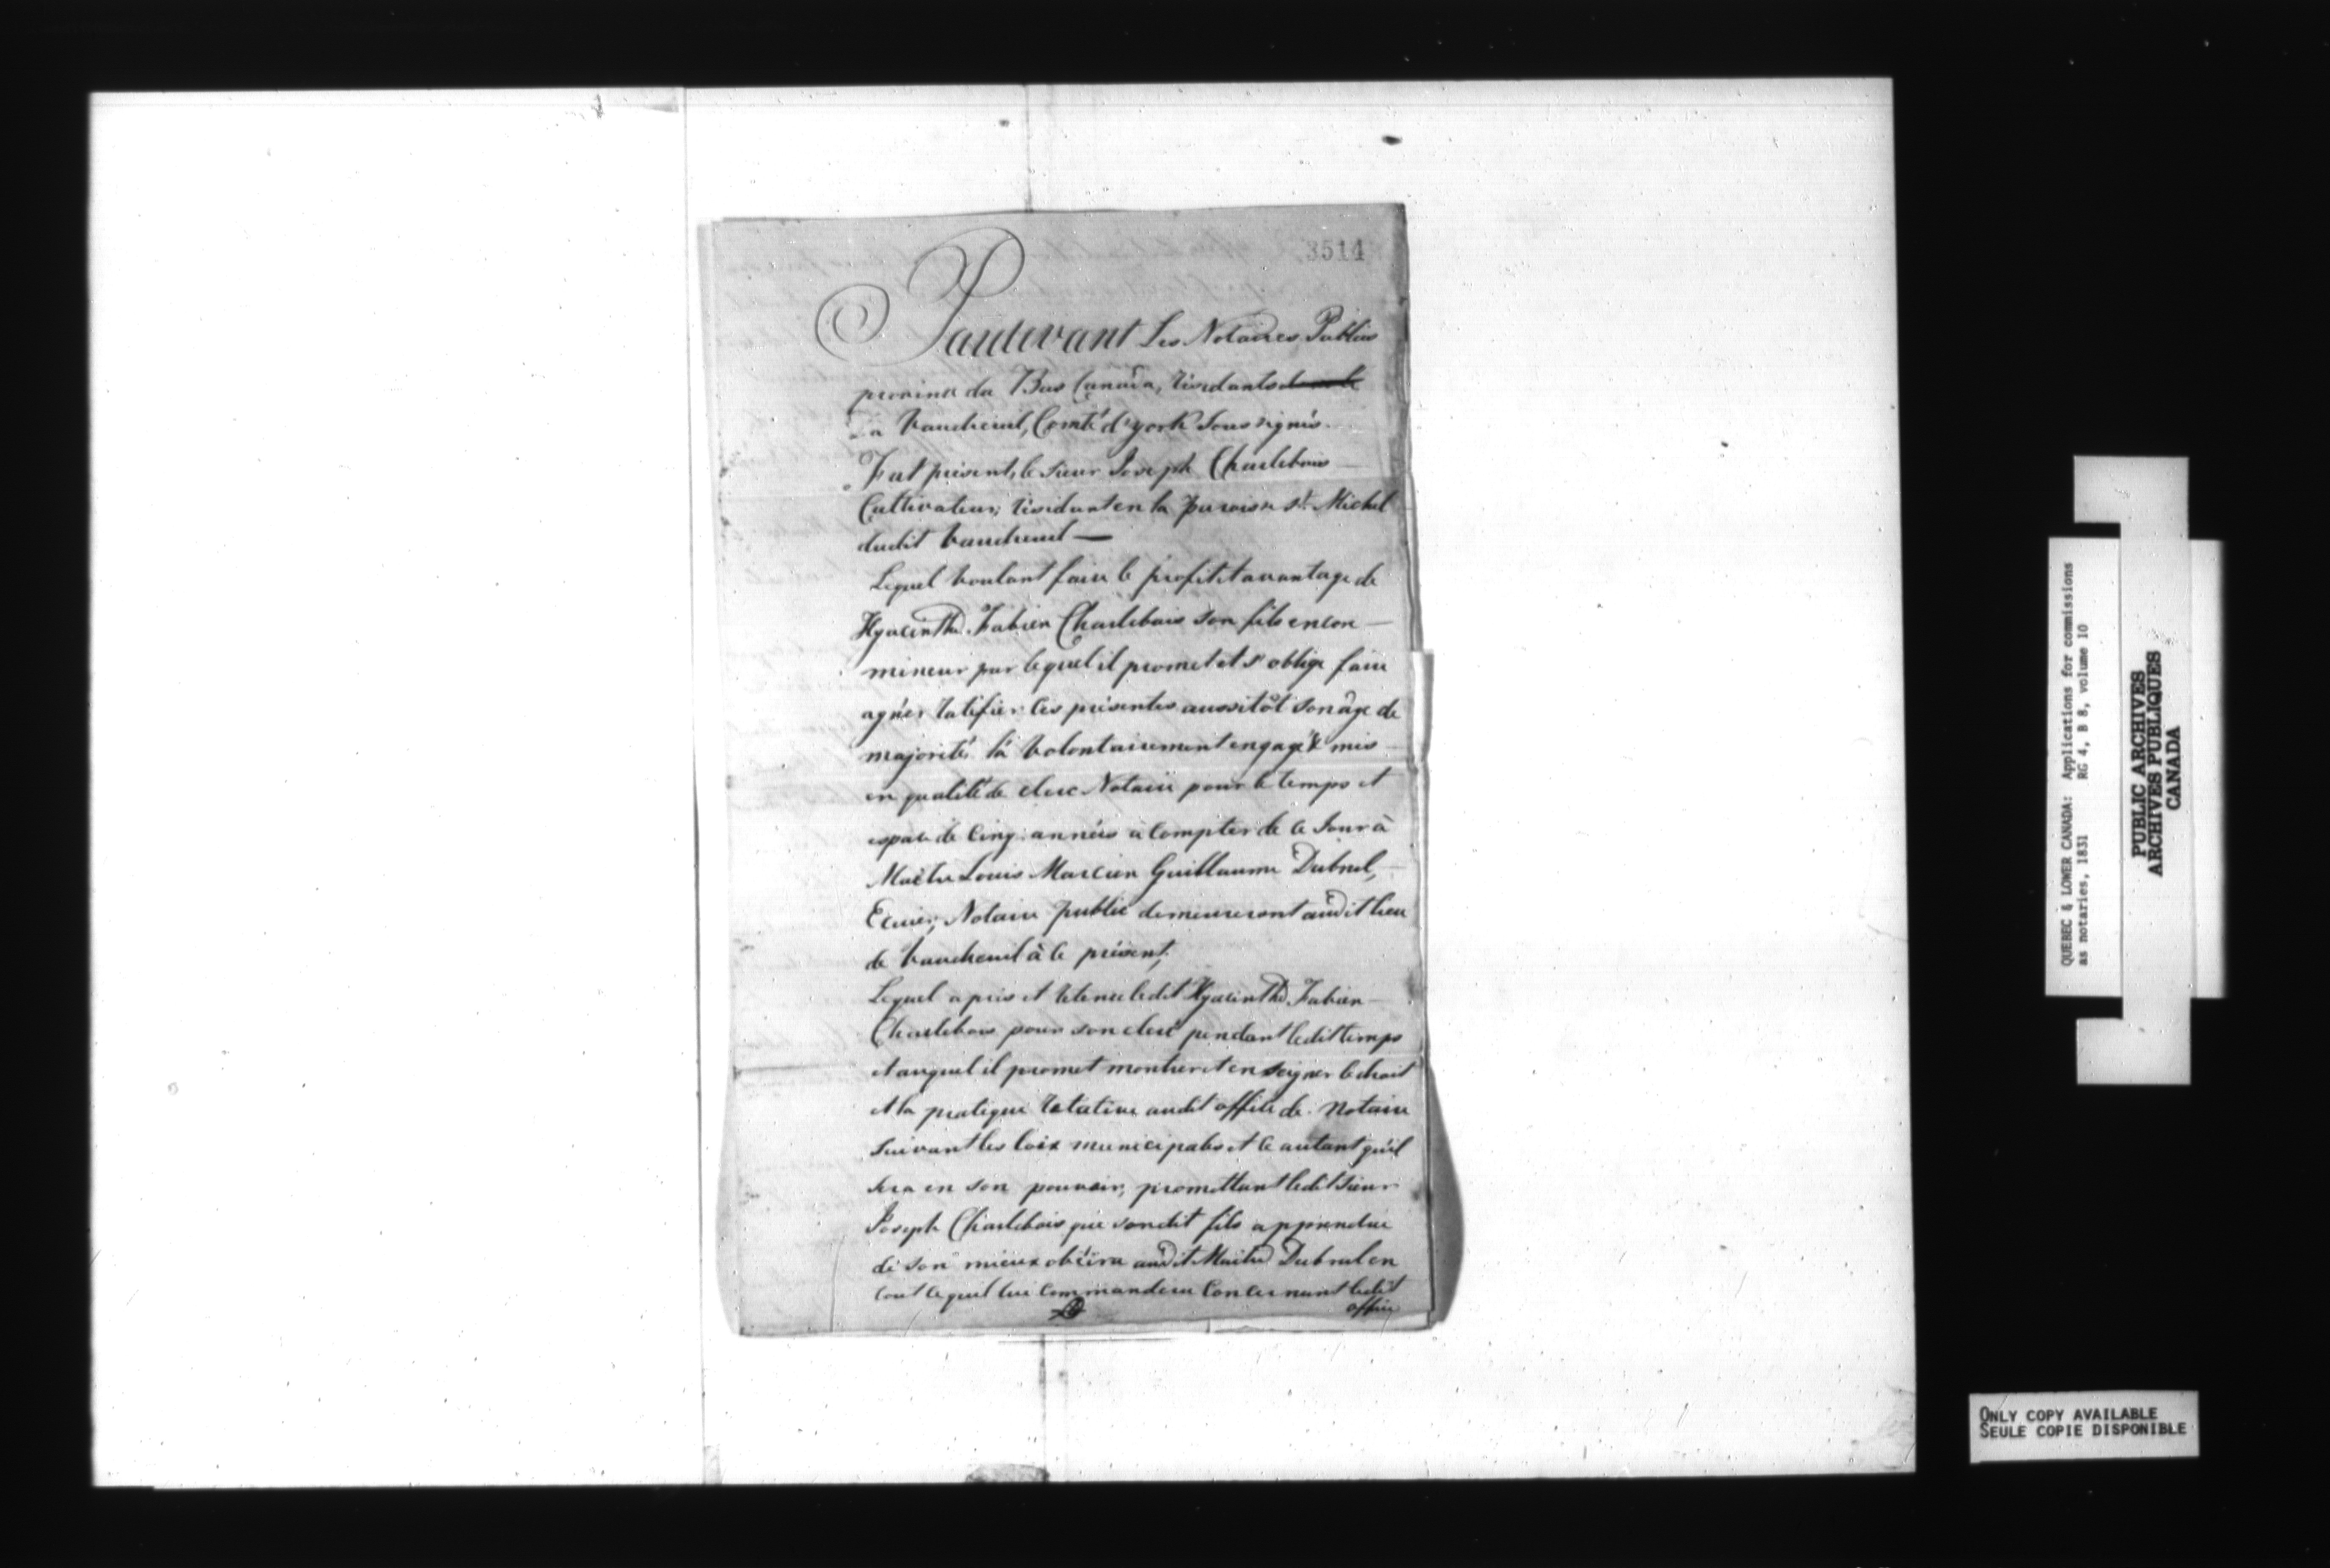 3514
Pardevant Les Notaires Publics
province du Bas Canada, résidants
à Vaudreuil, Comté d'york Soussignés.
Fut présent, le Sieur Joseph Charlebois
Cultivateur, résidant en la paroisse St. Michel
dudit Vaudreuil —
Lequel voulant faire le profit et avantage de
Hyacinthe Fabien Charlebois son fils encore
mineur par lequel il promet et s'oblige faire
agréer ratifier ces présentes aussitôt son âge de
majorité l'a volontairement engagé & mis
en qualité de clerc Notaire pour le temps et
espace de cinq années à compter de ce Jour à
Maître Louis Marcien Guillaume Dubrul,
Ecuier, Notaire public demeurant audit lieu
de Vaudreuil à ce présent,
Lequel a pris et retenu ledit Hyacinthe Fabien
Charlebois pour son clerc pendant ledit temps
et auquel il promet montrer et enseigner le droit
et la pratique relative audit office de Notaire
suivant les loix municipales et ce autant qu'il
sera en son pouvoir, promettant ledit Sieur
Joseph Charlebois que sondit fils apprendra
de son mieux obéira audit Maître Dubrul en
tout ce qu'il lui commandera concernant ledit
office
QUEBEC & LOWER CANADA: Applications for commissions
as notaries, 1831 RG 4, B 8, volume 10
PUBLIC ARCHIVES
ARCHIVES PUBLIQUES
CANADA
ONLY COPY AVAILABLE
SEULE COPIE DISPONIBLE